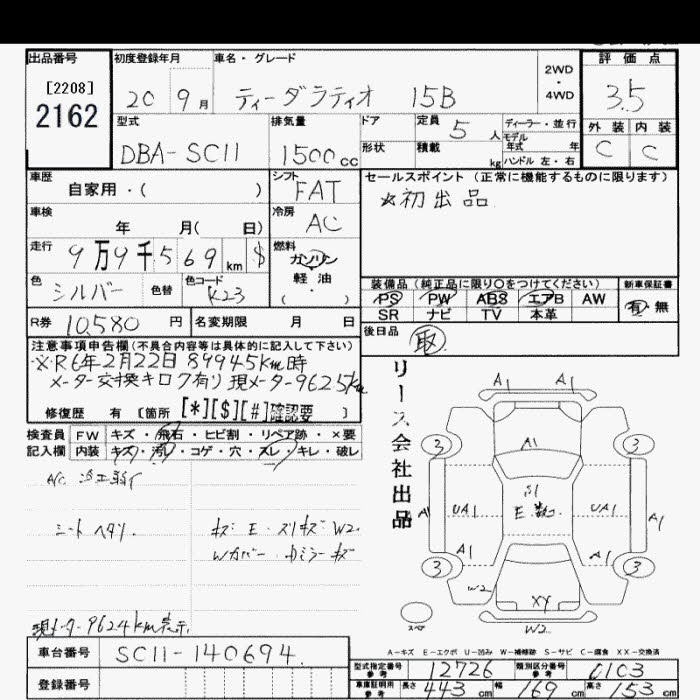 出品番号 初度登録年月 車名・グレード 2WD・4WD 評価点
[2208]
2162
20 9月 ティーダラティオ 15B 3.5
型式 排気量 ドア 定員 5人 ディーラー・並行 外装 内装
モデル年式 年
DBA-SC11 1500cc 形状 積載 kg ハンドル 左・右 C C
車歴 シフト セールスポイント(正常に機能するものに限ります)
自家用・( ) FAT ☆初出品
車検 冷房
年 月( 日) AC
走行 9万9千569km $ 燃料 ガソリン
軽・油
( ・ )
色 シルバー 色替 色コード K23
装備品(純正品に限り○をつけてください) 新車保証書
PS PW ABS エアB AW 有・無
SR ナビ TV 本革
R券 10,580円 名変期限 月 日 後日品 取
注意事項申告欄(不具合内容等は具体的に記入して下さい)
※R6年2月22日89945km時
メーター交換キロク有り 現メーター9625km
修復歴 有 [箇所 [*][$][#]確認要 ]
リース会社出品
検査員記入欄 FW キズ・飛石・ヒビ割・リペア跡・×要
内装 キズ・汚レ・コゲ・穴・スレ・キレ・破レ
A/C 冷工弱イ
シートヘタリ. キズ E・スリキズ W2.
Wカバー・カミラーキズ
現メーター9624km表示.
A1 A1
3 A1 3
A1 UA1 S1 E.数コ UA1 A1
A1 A1
3 3
W2 XY
スペア W2
A-キズ E-エクボ U-凹み W-補修跡 S-サビ C-腐食 XX-交換済
車台番号 SC11-140694
登録番号
型式指定番号参考 12726 類別区分番号参考 0103
車庫証明用参考 長さ 443cm 幅 169cm 高さ 153cm